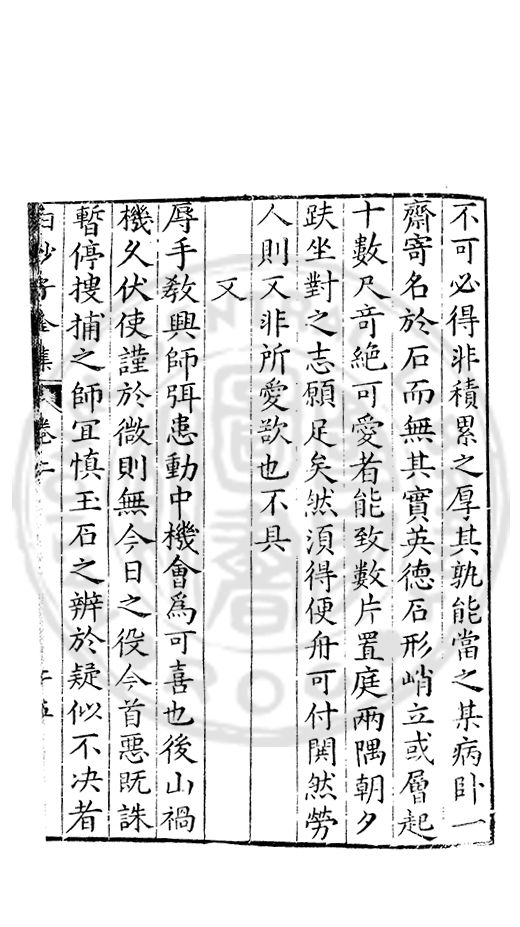 不可必得非積累之厚其孰能當之某病卧一
齋寄名於石而無其實英德石形峭立或層起
十數尺奇絶可愛者能致數片置庭兩隅朝夕
趺坐對之志願足矣然須得便舟可付関然勞
人則又非所愛欲也不具
又
辱手教興師弭患動中機會爲可喜也後山禍
機久伏使謹於微則無今日之役今首惡既誅
暫停搜捕之師冝慎玉石之辨於疑似不决者
白沙子全集
卷二